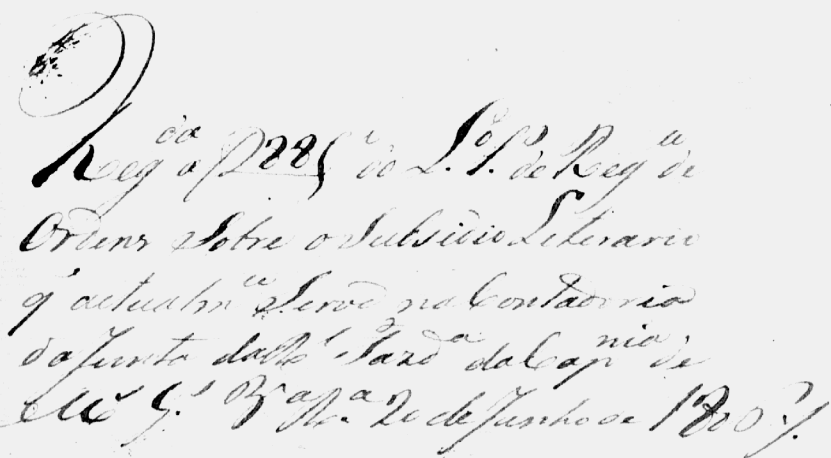 Reg.da a f 228 v do L.o 1.o de Reg.to de
Ordens Sobre o Subsidio Literario
q' actualm.te Serve na Contadoria
da Junta da R.l Faz.da da Cap.nia de
M.s G.s V.a R.a 20 de Junho de 1800